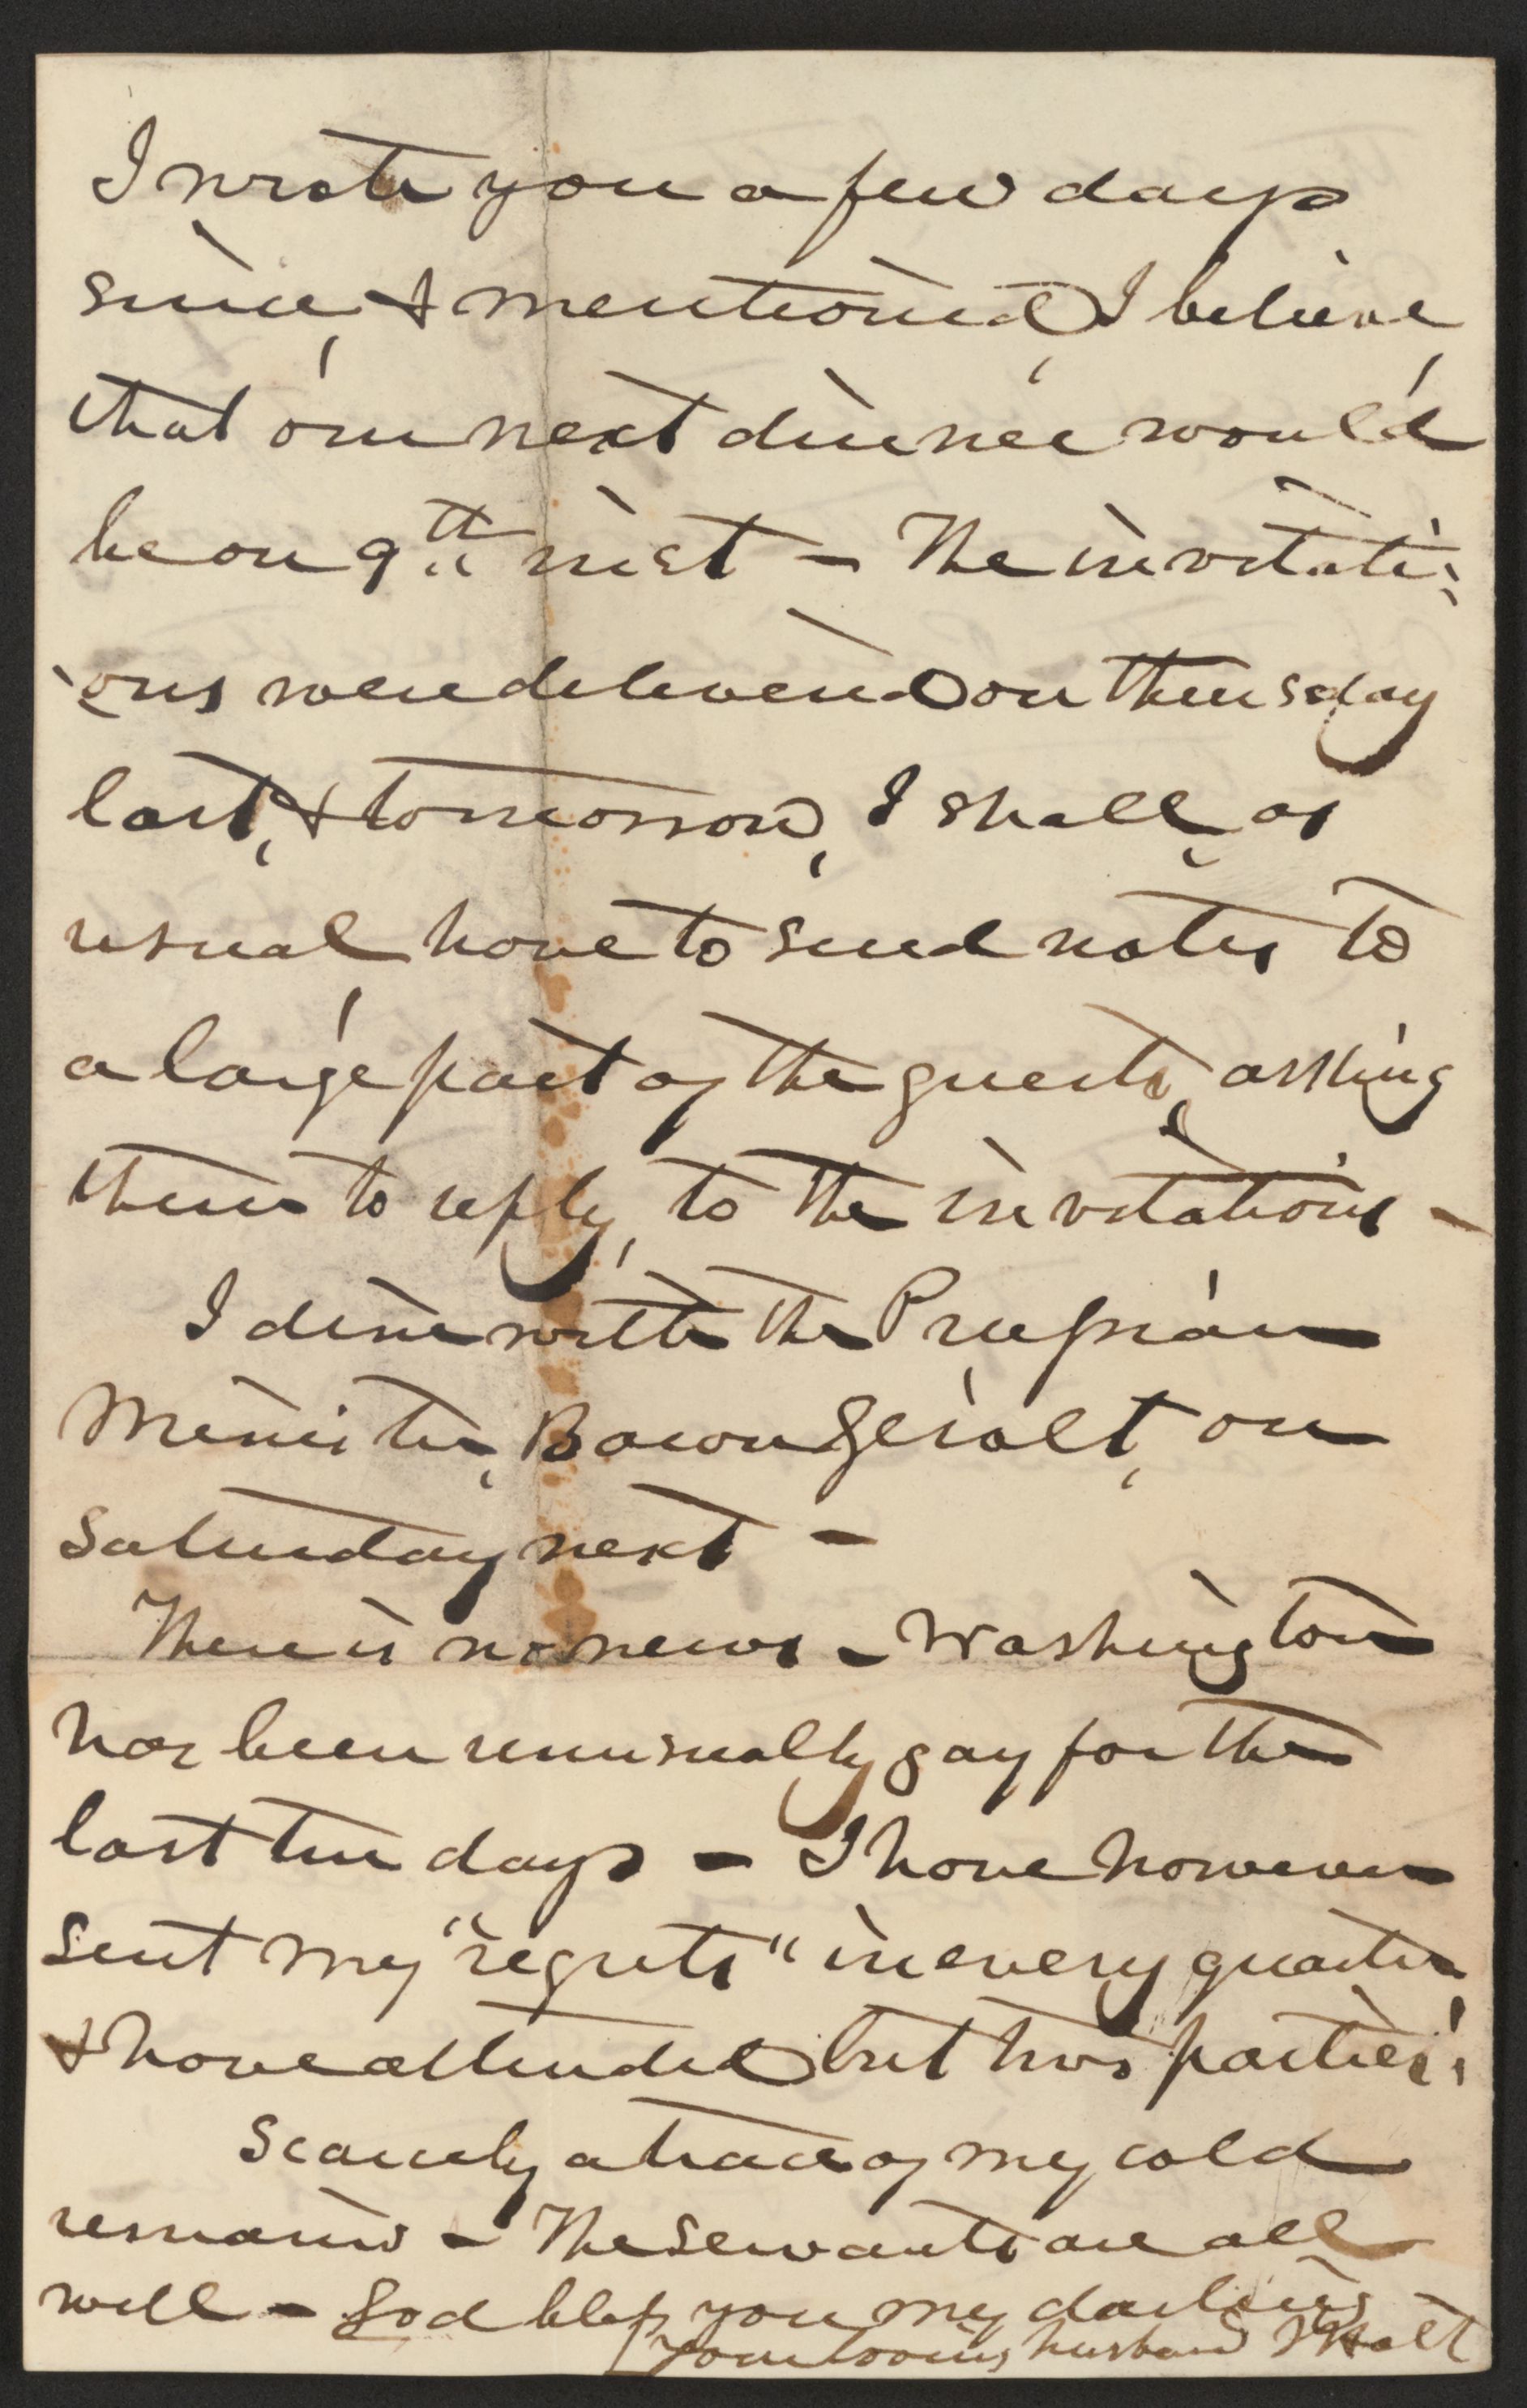 I wrote you a few days
since, & mentioned, I believe,
that our next dinner would
be on 9th inst – The invitati-
-ons were delivered on thursday
last, & tomorrow, I shall, as
usual, have to send notes to
a large part of the guests, asking
them to reply, to the invitations –
I dine with the Prussian
Minister, Baron Gerolt, on
Saturday next –
There is no news – Washington
has been unusually gay for the
last ten days – I have however
sent my "regrets" in every quarter
& have attended but two parties.
Scarcely a trace of my cold
remains – The servants are all
well – God bless you my darling
Your loving husband J Holt